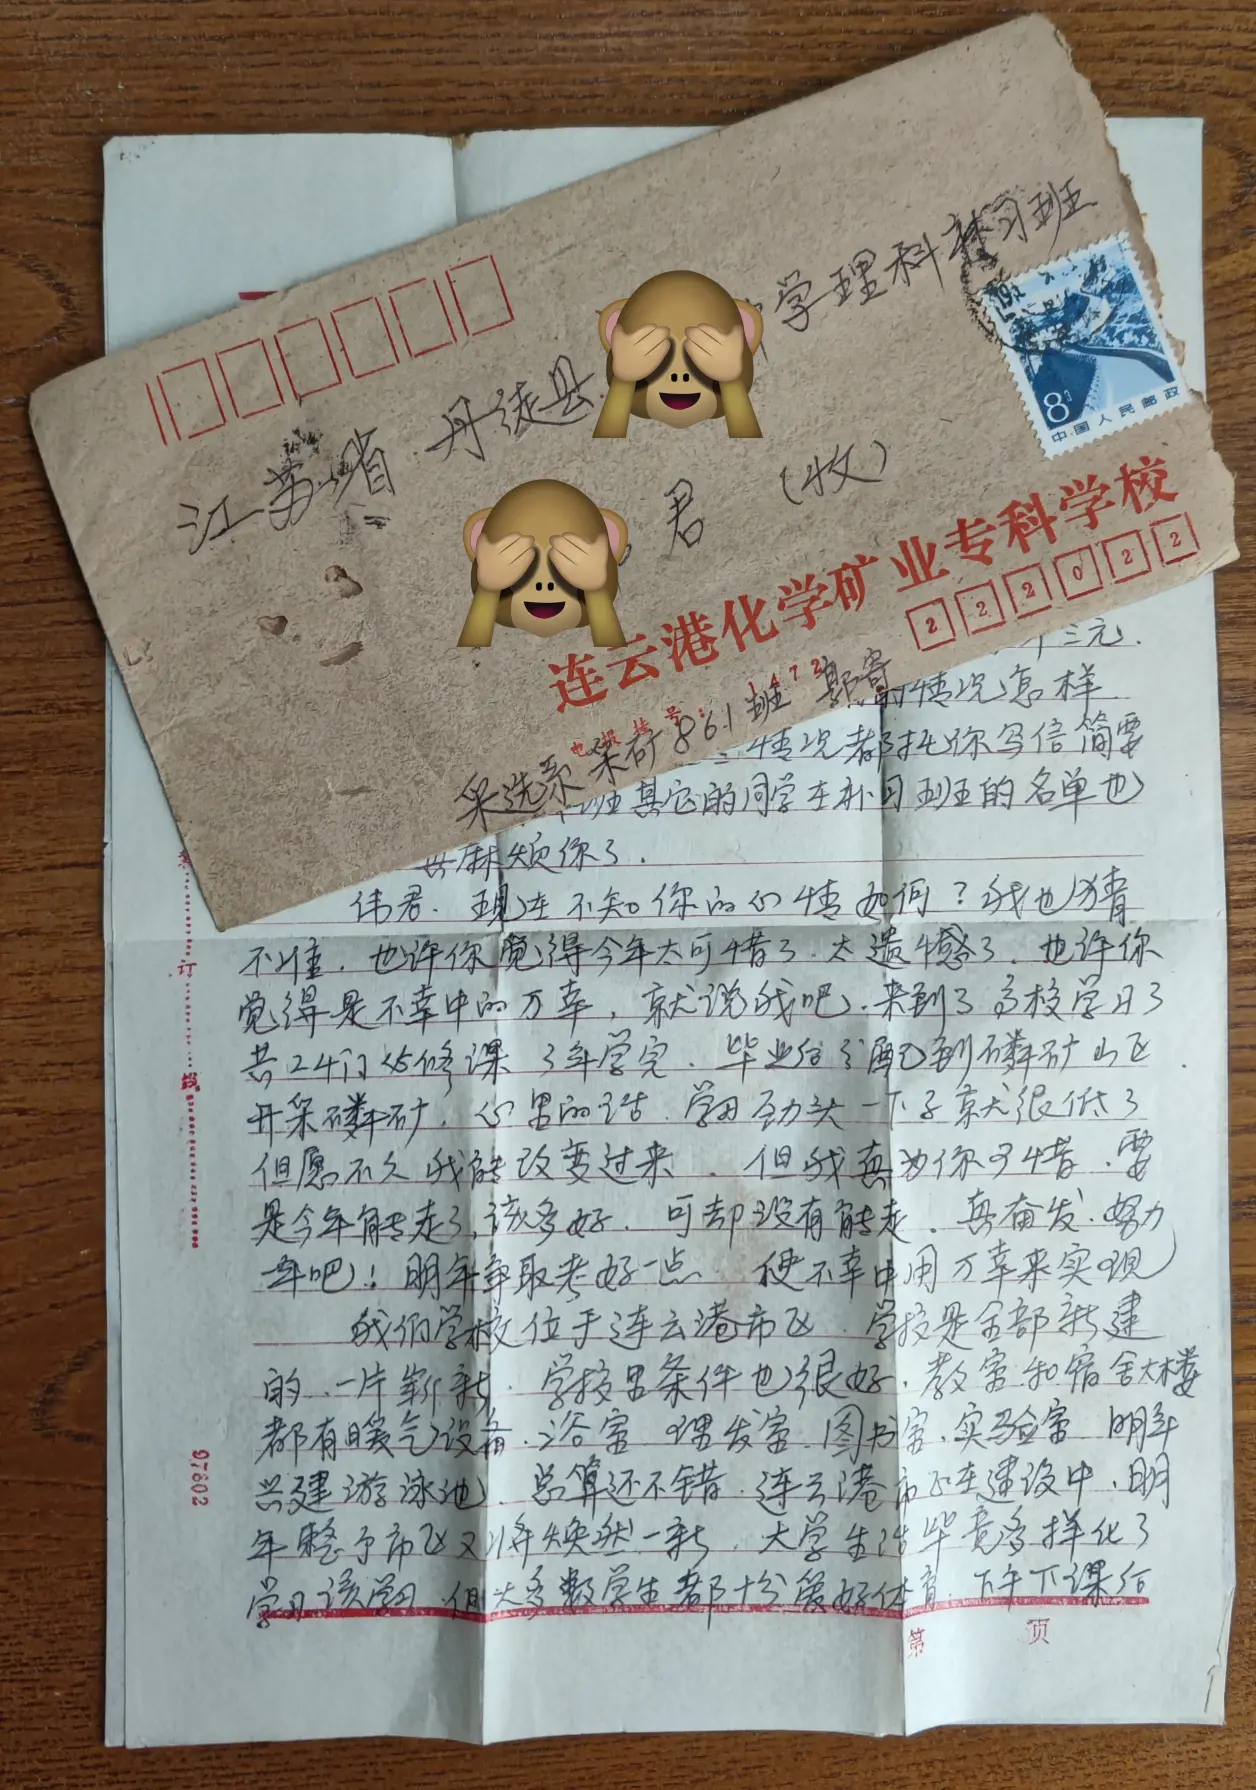 江苏省 丹徒县
学理科补习班
君 (收)
8分
中国人民邮政
连云港化学矿业专科学校
222022
采选系 采矿861班 郭寄
三元.
情况怎样
情况都托你写信简要
班其它的同学在补习班的名单也
麻烦你了.
伟君. 现在不知你的心情如何?我也猜
不准. 也许你觉得今年太可惜了.太遗憾了. 也许你
觉得是不幸中的万幸, 就说我吧.来到了高校学习了
共24门必修课 3年学完. 毕业后分配到磷矿山区
开采磷矿. 心里的话. 学习劲头一下子就很低了
但愿不久我能改变过来. 但我真为你可惜.要
是今年能走了,该多好. 可却没有能走. 再奋发.努力
一年吧! 明年争取考好一点 使不幸中用万幸来实现
我们学校位于连云港市区. 学校是全部新建
的.一片崭新. 学校里条件也很好.教室和宿舍大楼
都有暖气设备.浴室 理发室.图书室.实验室 明年
兴建游泳池. 总算还不错.连云港市正在建设中.明
年整个市区又将焕然一新. 大学生活毕竟多样化了
学习该学习.但大多数学生都十分爱好体育.下午下课后
第 页
订
线
97602